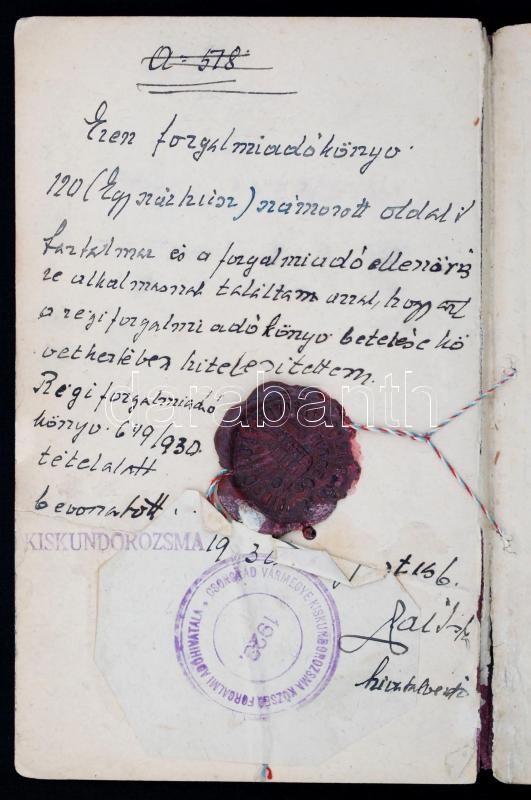 a-578.
Ezen forgalmiadókönyv
120 (Egyszázhúsz) számozott oldalt
tartalmaz és a forgalmiadó ellenőrzés
re alkalmasnak találtam azzal, hogy azt
a régi forgalmi adókönyv betelése kö
vetkeztében hitelesítettem.
Régi forgalmiadó
könyv 649/930
tétel alatt
bevonatott.
darabanth
KISKUNDOROZSMA 193
CSONGRÁD VÁRMEGYE KISKUNDOROZSMA KÖZSÉG FORGALMIADÓHIVATALA
1923.
hivatalvezető